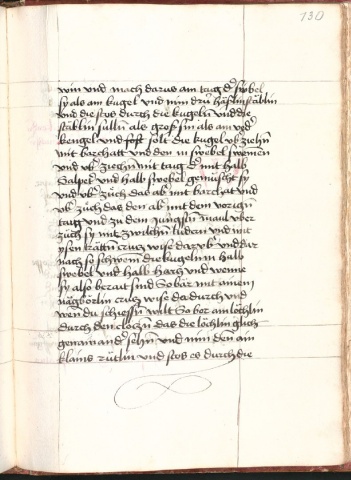 130
win vnd mach darus ain taig dz swebel
sy als ain kugel vnd nim drü häslin stäblin
vnd die stos durch die kugeln vnd die
stäblin süllen als groß sin als ain
kengel vnd solt die kugel vberziehn
mit barchatt vnd den in swebel
vnd vber ziehn mit taig der mit halb
Salpeter vnd halb swebel gemischt sy
vnd vber züch das aber mit barchat vnd
vber züch das den aber mit dem vorigen
taig vnd zu dem jungsten maul vber
züch sy mit zwilchin ludern vnd mit
ysen trätten crucz wise dar vber vnd dar
nach so schwem die kugeln in halb
swebel vnd halb harcz vnd wenne
sy also berait sind So bär mit ainem
näg börlin crucz wise da durch vnd
wen du schiessen wilt So bor ain löchlin
durch den das die löchlin glich
gen ain ander sehen vnd nim den ain
klains rütlin vnd stos es durch die